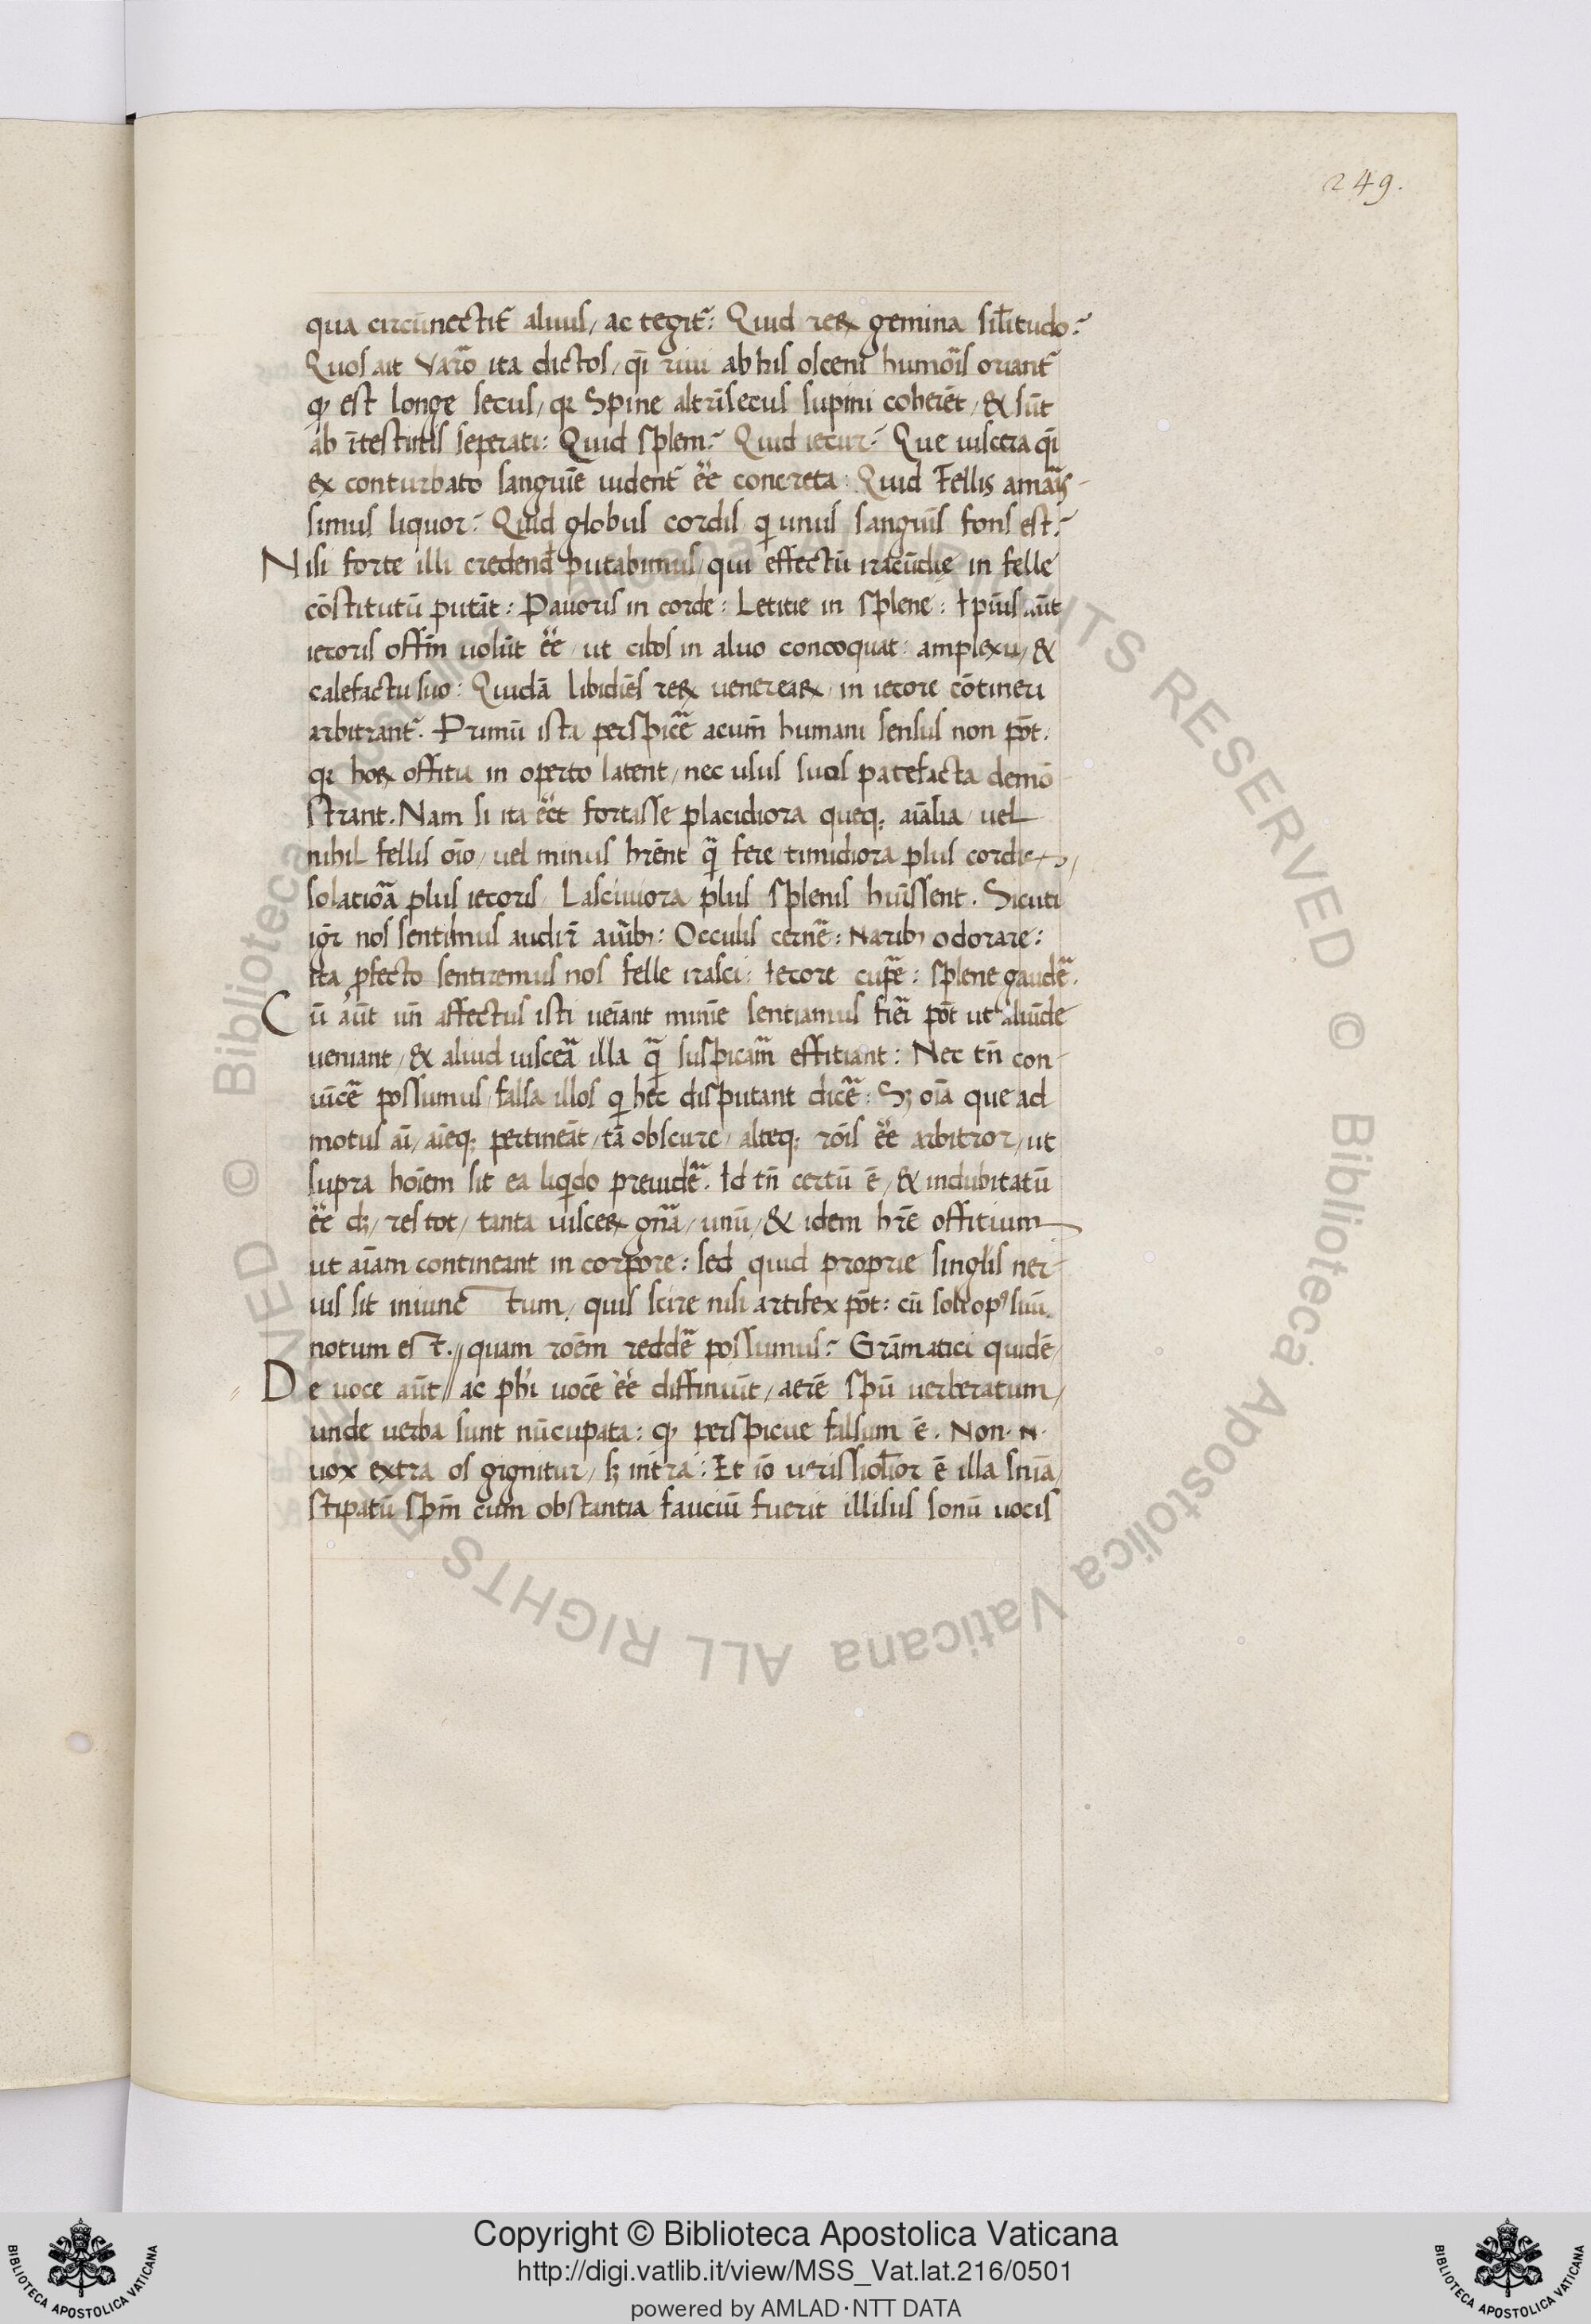 249.
qua circūnectit᷑ aluus, ac tegit᷑: Quid reꝝ gemina sil̄itudo?
Quos ait Varro ita dictos, qi̅ riui ab his osceni humoris oriant᷑
qͥ est longe secus, qꝛ Spine altrı̄secus supini coherēt, & sūt
ab ı̄testinis seperati: Quid splem? Quid iecur? Que uiscera qi̅
ex conturbato sanguı̄e uident᷑ e̋e concreta: Quid Fellis amaris-
simus liquor? Quid globus cordis qͥ unus sanguı̄s fons est?
Nisi forte illi credend̄ putabimus, qui effectū iracūdie in felle
cōstitutū putāt: Pauoris in corde: Letitie in splene: Ipı̄us aūt
iecoris offı̄m uolūt e̋e, ut cibos in aluo concoquat: amplexu, &
calefactu suo: Quidā libidiēs reꝝ venereaꝝ, in iecore cōtineri
arbitrant᷑. Primū ista perspice᷑ acum̄ humani sensus non pōt.
qꝛ hoꝝ offitia in operto latent, nec usus suos patefacta demō-
strant. Nam si ita e̋et fortasse placidiora queq; aı̄alia, uel
nihil fellis oı̄o, uel minus hr̄ent q̄ fere, timidiora plus cordis,
solatiora plus iecoris, Lasciuiora plus splenis huı̄ssent. Sicuti
igr̄ nos sentimus audir̄ aurib;: Occulis cerne᷑: Narib; odorare:
ita ꝓfecto sentiremus nos felle irasci: Iecore cupe᷑: splene gaude᷑.
Cū aūt un̄ affectus isti ueı̄ant minı̄e sentiamus fieri pōt ut aliūde
ueniant, & aliud uiscera illa q̄ suspicam᷑ effitiant: Nec tn̄ con-
uı̄ce᷑ possumus, falsa illos qͥ hec disputant dice᷑: Sꝫ oı̄a que ad
motus aı̄, aı̄eq; pertineāt, tā obscure, alteq; rōis e̋e arbitror, ut
supra hoı̄em sit ea liqͥdo preuide᷑. Id tn̄ certū ē, & indubitatū
e̋e dꝫ, res tot, tanta uisceꝝ gn̄a, unū, & idem hr̄e offitium
ut aı̄am contineant in corpore: sed quid proprie singl̄is ner-
uis sit iniunc tum, quis scire nisi artifex pōt: cū soli opꝰ suū
notum est. // quam rōem redde᷑ possumus? Grāmatici quidē,
De uoce aūt // ac phı̄ uocē e̋e diffiniūt, aerē spū uerberatum,
unde uerba sunt nūcupata: qͥ perspicue falsum ē. Non. N.
uox extra os gignitur, sꝫ intra: Et iō uerissil̄ior ē illa snı̄a,
stipatū spm̄ cum obstantia fauciū fuerit illisus sonū uocis
Copyright © Biblioteca Apostolica Vaticana
http://digi.vatlib.it/view/MSS_Vat.lat.216/0501
powered by AMLAD·NTT DATA
BIBLIOTECA APOSTOLICA VATICANA
BIBLIOTECA APOSTOLICA VATICANA
© Biblioteca Apostolica Vaticana ALL RIGHTS RESERVED © Biblioteca Apostolica Vaticana ALL RIGHTS RESERVED